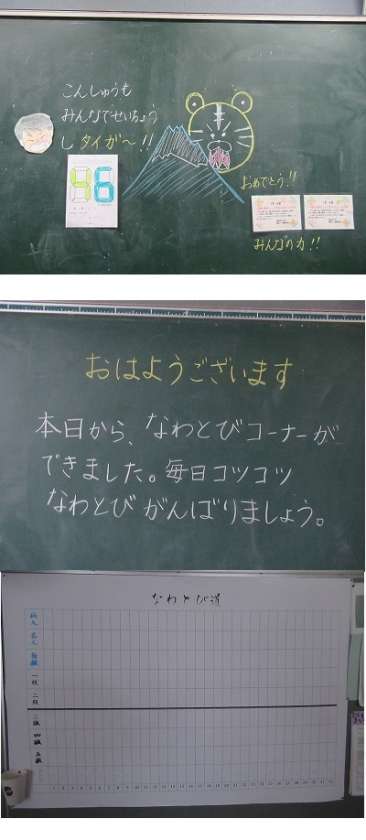 こんしゅうも
みんなでせいちょう
し タイが〜!!
46
おめでとう!!
みんなの力!!
おはようございます
本日から、なわとびコーナーが
できました。毎日コツコツ
なわとびがんばりましょう。
なわとび道
名人
一級
二級
三級
四級
五級